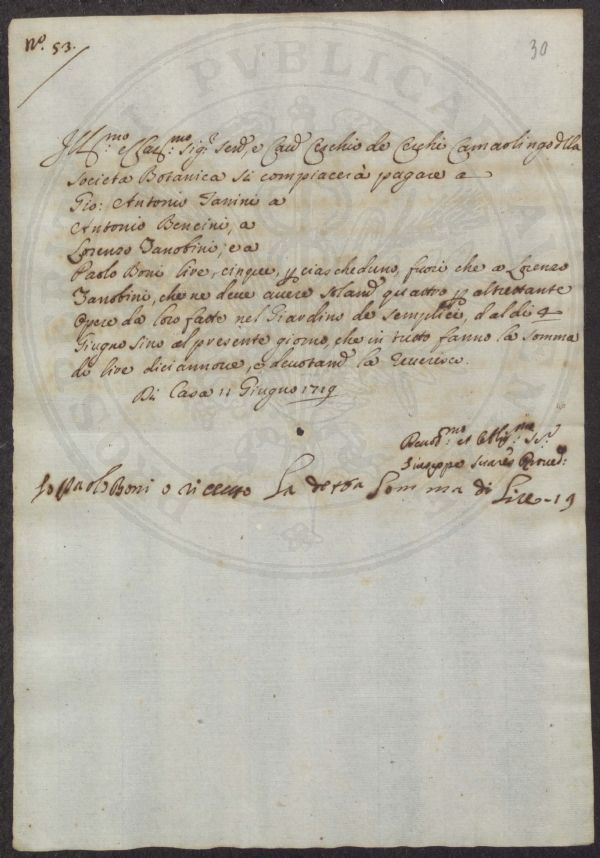 N.º 53.
30
Ill.mo e Clar.mo Sig.r Sen.e, e Cav.e Cerchio de Cerchi Camarlingo della
Società Botanica si compiacerà pagare a
Gio: Antonio Janini a
Antonio Bencini, a
Lorenzo Zanobini, e a
Paolo Boni lire, cinque, p ciascheduno, fuori che a Lorenzo
Zanobini, che ne deve avere soland quattro p altrettante
Opere da loro fatte nel Giardino de Semplici, dal dì 4
Giugno sino al presente giorno, che in tutto fanno la somma
di lire diciannove, e devotand la Reverisco.
Di Casa 11 Giugno 1719
Devot.mo et Obblig.mo Se.
Giuseppe Suares Proved:
Io Paolo Boni o riceuto La detta Somma di Lire - 19
POSSESSORI PVBLICAE